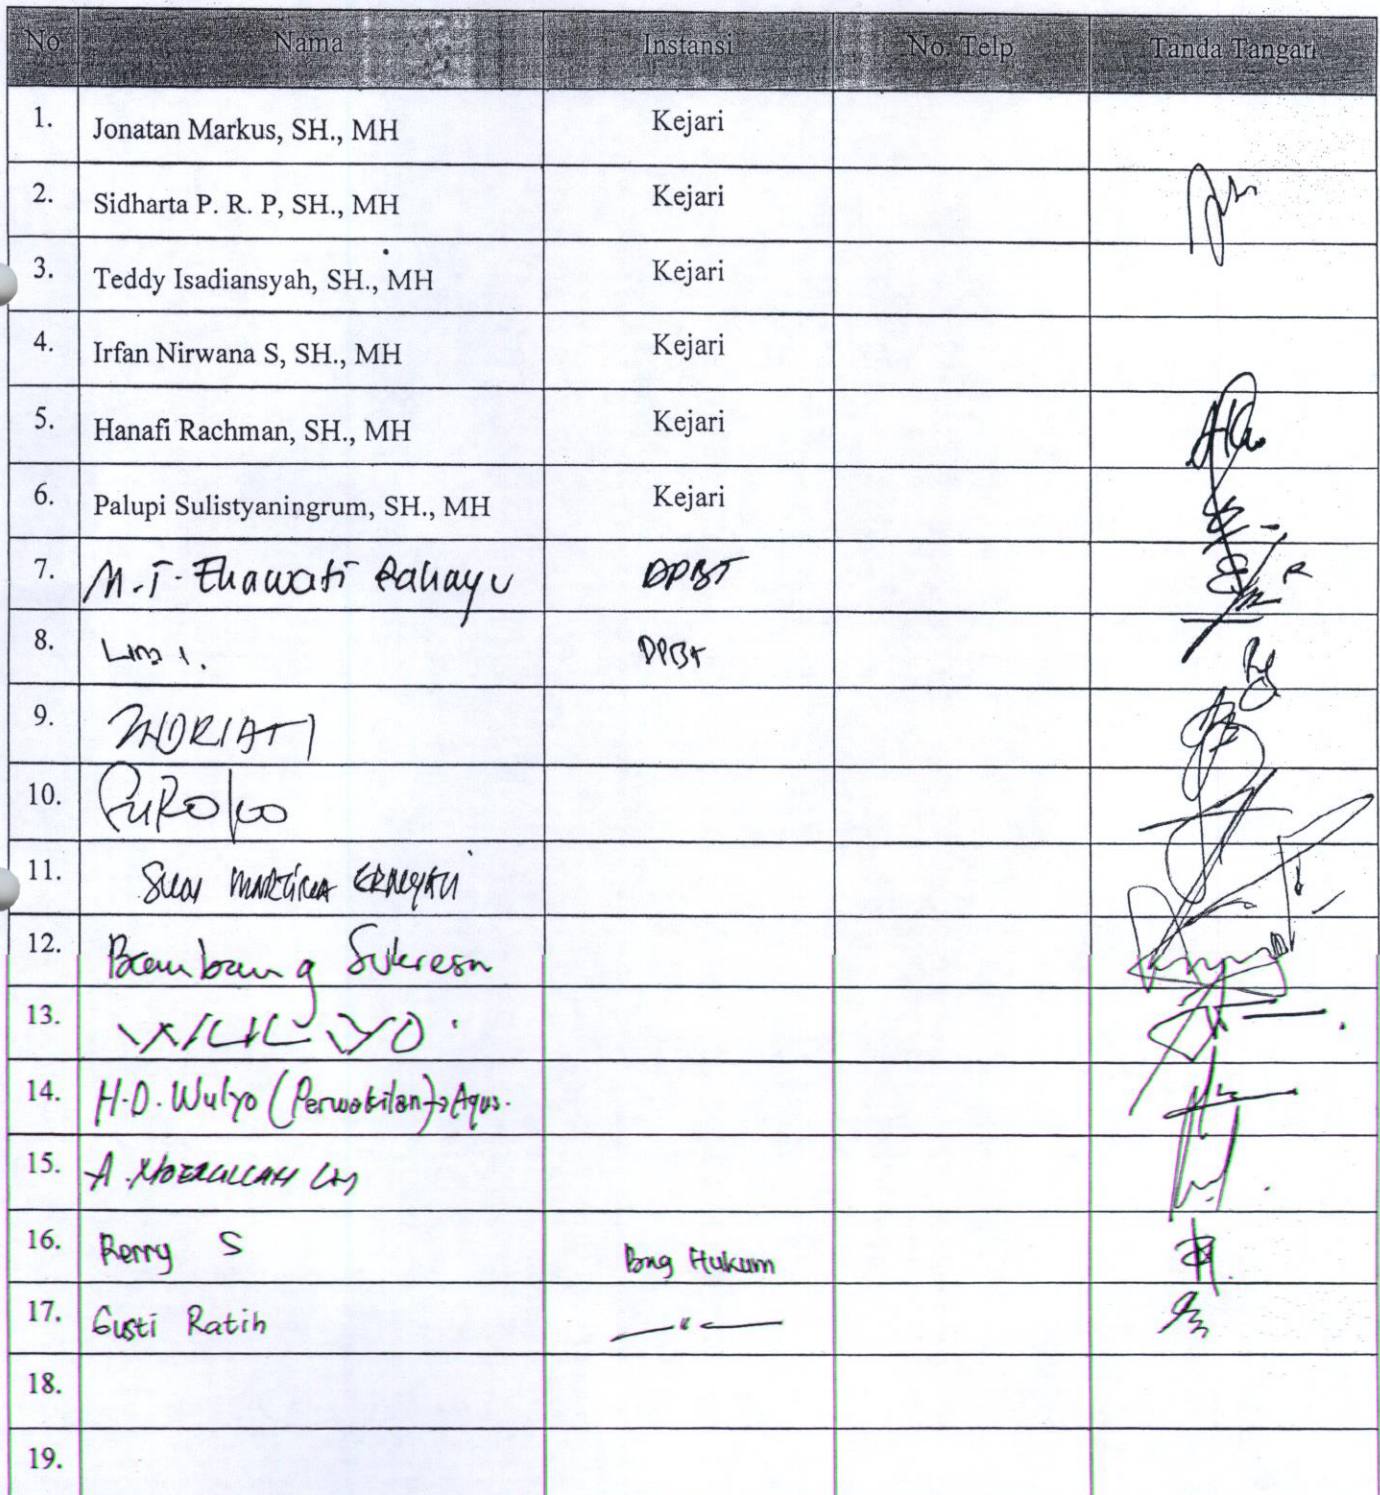 No Nama Instansi No. Telp Tanda Tangan
1. Jonatan Markus, SH., MH Kejari
2. Sidharta P. R. P, SH., MH Kejari
3. Teddy Isadiansyah, SH., MH Kejari
4. Irfan Nirwana S, SH., MH Kejari
5. Hanafi Rachman, SH., MH Kejari
6. Palupi Sulistyaningrum, SH., MH Kejari
7. M.T. Ekawati Rahayu DPBT
8. DPBT
9.
10.
11.
12. Bambang Sukresn
13.
14. H.D. Wulyo (Perwakilan) → Agus.
15. A.
16. Rerry S Bag Hukum
17. Gusti Ratih — " —
18.
19.